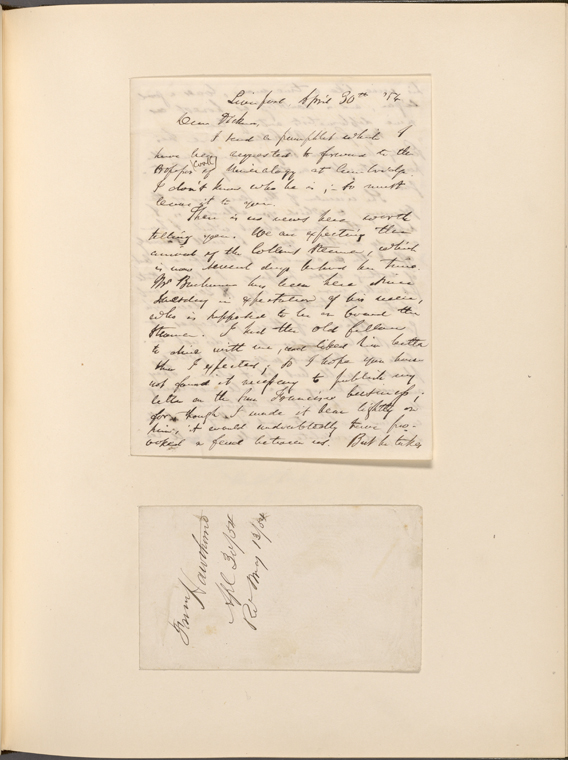 Liverpool April 30th '54
Dear Ticknor,
I send a pamphlet which I
have been requested to forward to the
Profess of (Cook) Mineralogy at Cambridge
I don't know who he is; so must
leave it to you.
There is no news here worth
telling you. We are expecting the
arrival of the Collins Steamer, which
is now several days behind her time
Mr Buchanan has been here since
Tuesday in expectation of his niece,
who is supposed to be on board the
Steamer. I had the old fellow
to dine with me, and liked him better
than I expected; so I hope you have
not found it necessary to publish my
letter on the San Francisco business;
for though I made it bear lightly on
him, it would undoubtedly have pro-
voked a feud between us. But he takes
From Hawthorne
Apl 30/54
Rd May 13/54